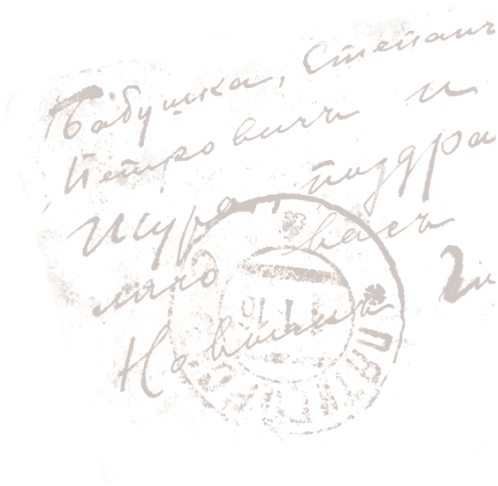 Бабушка, Степанъ
Петровичъ и
Шура, поздра
вляю васъ
Новымъ